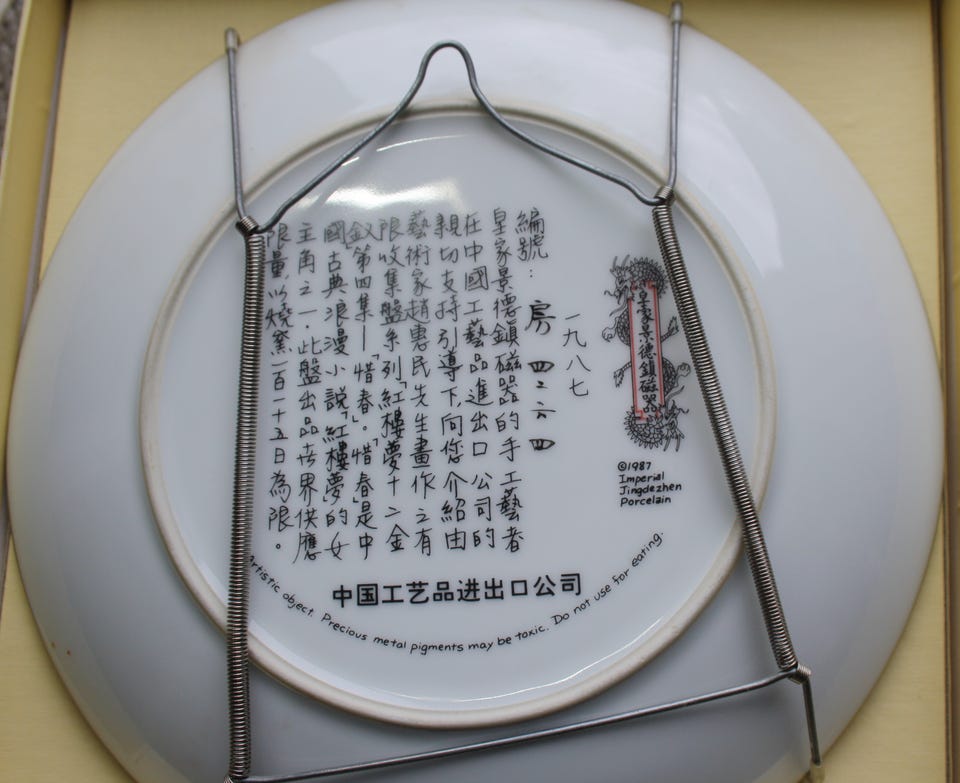 皇家景德鎮磁器
©1987
Imperial
Jingdezhen
Porcelain
一九八七
編號: 房 四二六四
皇家景德鎮磁器的手工藝者
在中國工藝品進出口公司的
親切支持引導下,向您介紹由
藝術家趙惠民先生畫作之有
限收集盤系列「紅樓夢十二金
釵第四集—「惜春」。「惜春」是中
國古典浪漫小說「紅樓夢」的女
主角之一.此盤出品世界供應
限量,以燒窯一百一十五日為限。
中国工艺品进出口公司
artistic object. Precious metal pigments may be toxic. Do not use for eating.